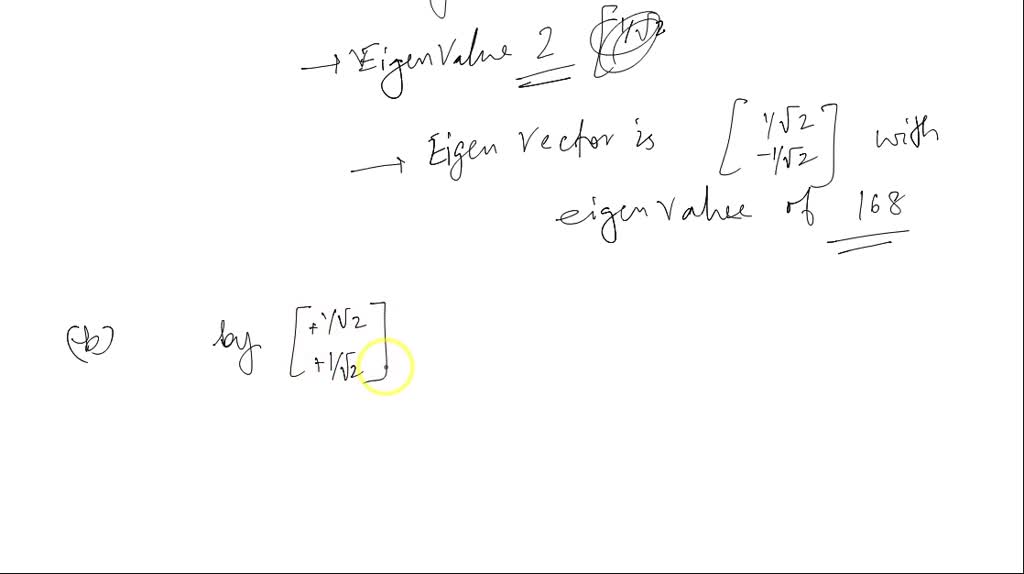 → Eigenvalue 2
→ Eigen vector is [1/√2 -1/√2] with
eigenvalue of 168
(b) by [+1/√2 +1/√2]